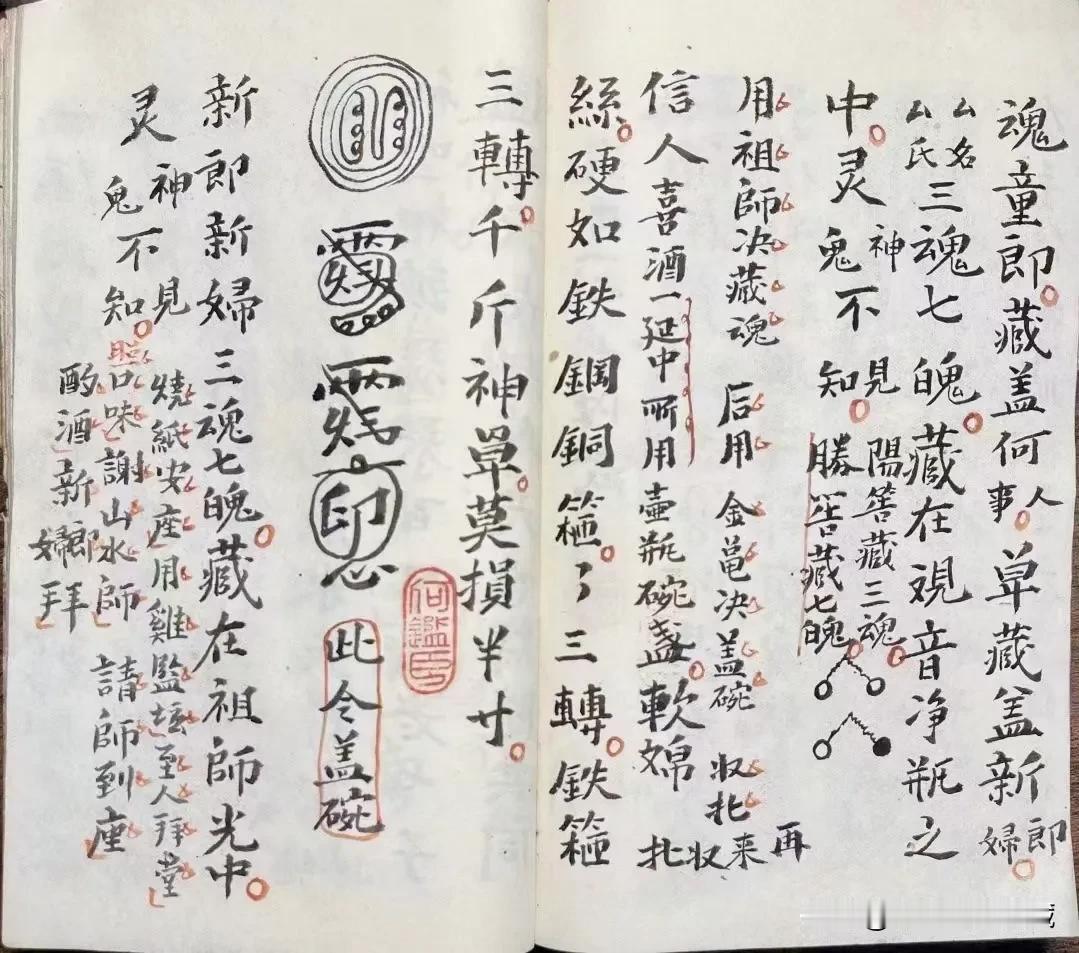 魂童郎藏盖何人事卓藏盆新郎婦
厶名厶氏三魂七魄藏在观音净瓶之
中灵神鬼不見知陽筶藏三魂勝筶藏七魄
用祖師决藏魂后用金黾决盖碗収扎再来
信人喜酒一延中所用壷瓶碗盏軟綿扎収
絲硬如鉄鋼銅箍了三轉鉄箍
三轉千斤神卓莫損半寸
印
此令盖碗
何鑑臣
新郎新婦三魂七魄藏在祖師光中
灵神鬼不見知燒紙安座用雞監壇至人拜堂
味謝山水師請師到座
酌酒新郎婦拜